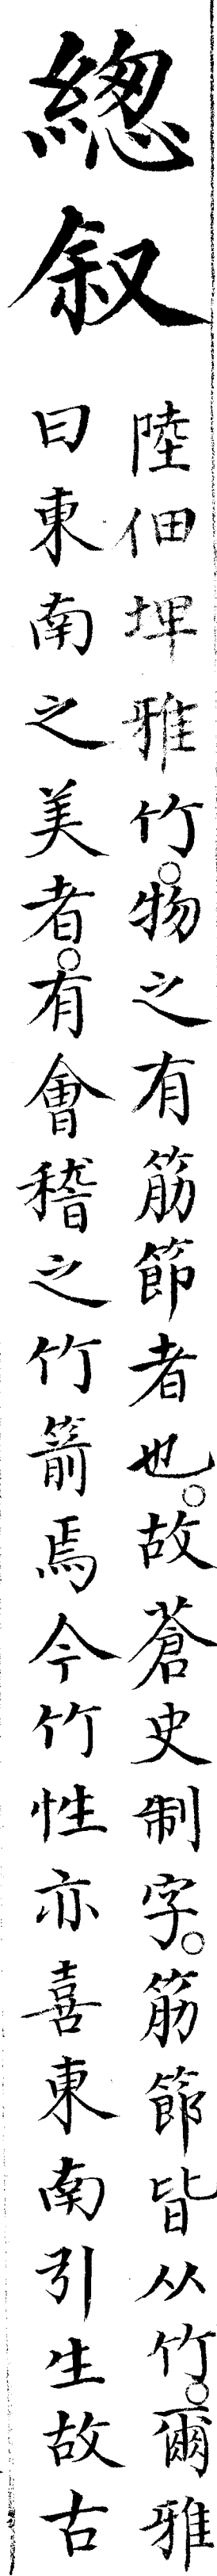 總叙
陸佃埤雅竹。物之有筋節者也。故蒼史制字。筋節皆从竹。爾雅
曰東南之美者。有會稽之竹箭焉今竹性亦喜東南引生故古